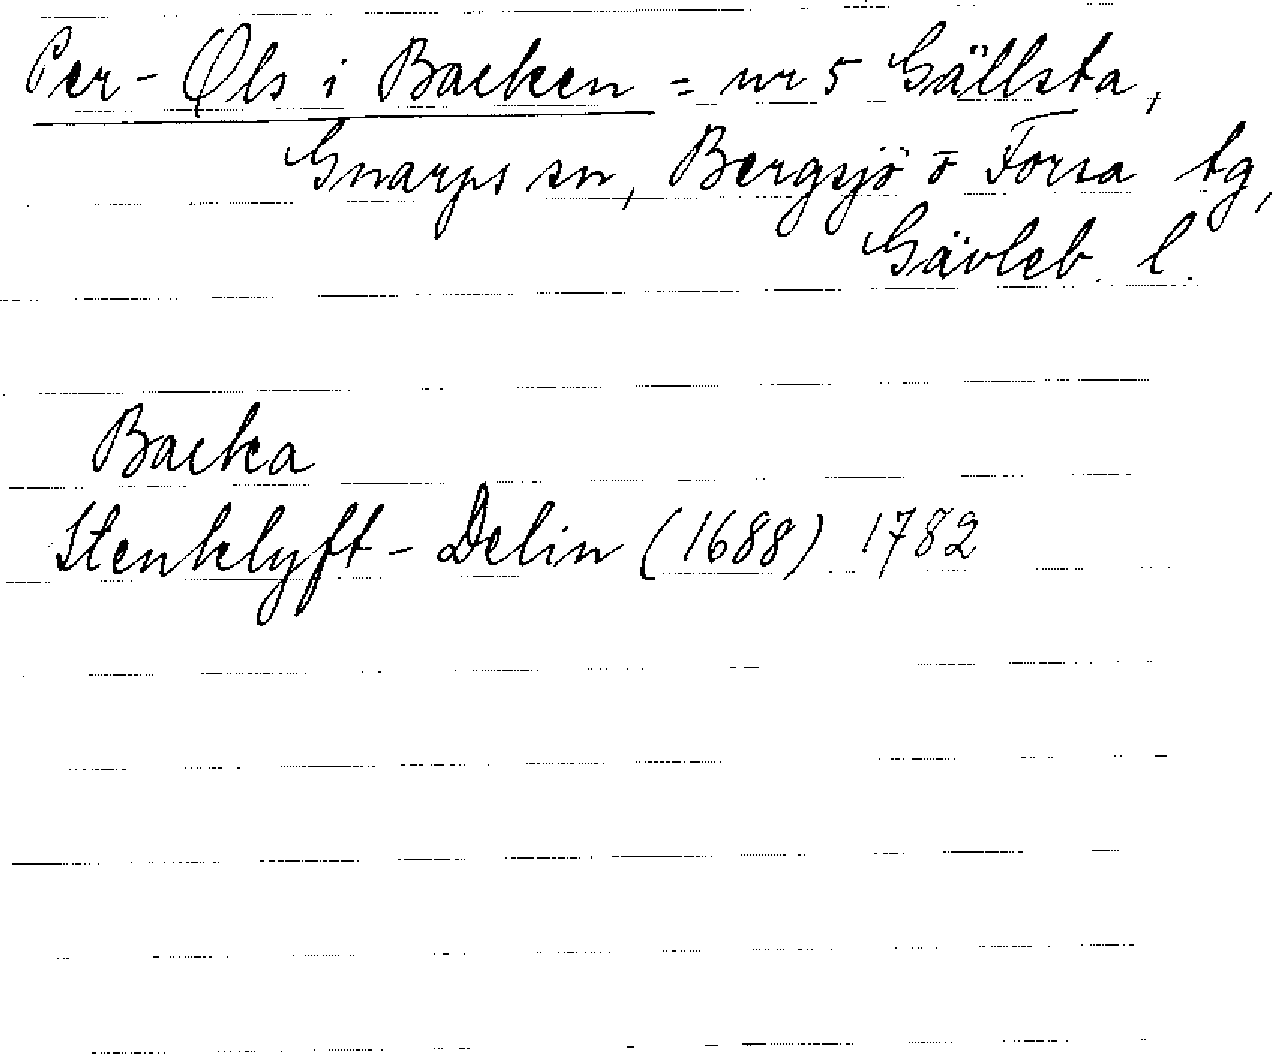 Per-Øls i Backen = nr 5 Gällsta,
Gnarps sn, Bergsjö o Forsa tg,
Gävleb. l.
Backa
Stenklyft - Delin (1688) 1782